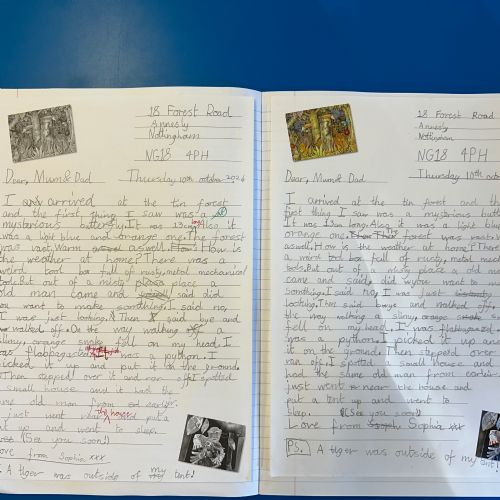 18 Forest Road
Annesly
Nottingham
NG18 4PH
Dear, Mum&Dad Thursday 10th october 2024
I arrived at the tin forest
and the first thing I saw was a
mysterious butterfly. It was 13cm long. Also it
was a light blue and orange one. The forest
was vast, warm aswell. How is
the weather at home? There was a
weird tool box full of rusty, metal mechanical
tools. But out of a misty place a
old man came and said did
you want to make something. I said no
I was just looking. Then said bye and
walked off. On the way walking a
sliny, orange fell on my head. I
was flabbegasted. It was a python. I
picked it up and put it on the ground.
Then stepped over it and ran off. I spotted
small house and it had a
same old man from earlier.
just went near the house put a
tent up and went to sleep.
(See you soon!)
Love from Sophia xxx
A tiger was outside of my tent!
18 Forest Road
Annesly
Nottinham
NG18 4PH
Dear, Mum&Dad Thursday 10th octo
I arrived at the tin forest and the
first thing I saw was a mysterious butt
It was 13cm long. Also it was a light blue
orange one. The forest was vast, wa
aswell. How is the weather at home? There
a weird tool box full of rusty, metal mech
tools. But out of a misty place a old man
came and said, did you want to make
somthing. I said no, I was just
looking. Then said bye and walked off
the way walking a sliny, orange
fell on my head. I was flabbegasted
was a python. I picked it up and
it on the ground. Then stepped over
ran off. I spotted a small house and
had the same old man from earlier
just went near the house and
put a tent up and went to
sleep. (See you soon!)
Love from Sophia xxx
PS. A tiger was outside of my tent!